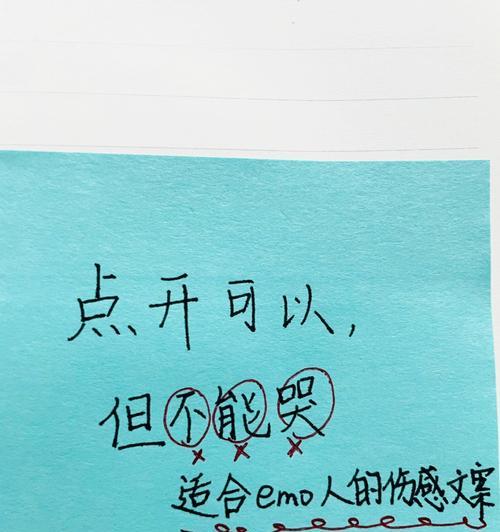 点开可以,
但不能哭
适合emo人的伤感文案